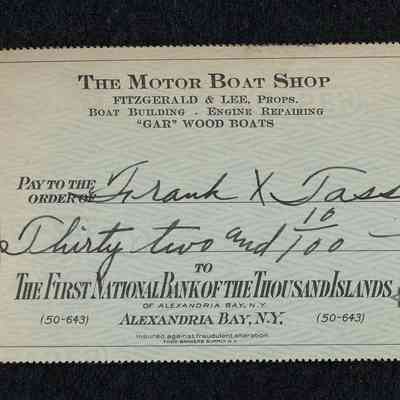 THE MOTOR BOAT SHOP
FITZGERALD & LEE, PROPS.
BOAT BUILDING - ENGINE REPAIRING
"GAR" WOOD BOATS
PAY TO THE
ORDER OF Frank X Tass
Thirty two and 10/100
TO
THE FIRST NATIONAL BANK OF THE THOUSAND ISLANDS
OF ALEXANDRIA BAY, N.Y.
(50-643) ALEXANDRIA BAY, N.Y. (50-643)
Insured against fraudulent alteration
TODD BANKERS SUPPLY N.Y.